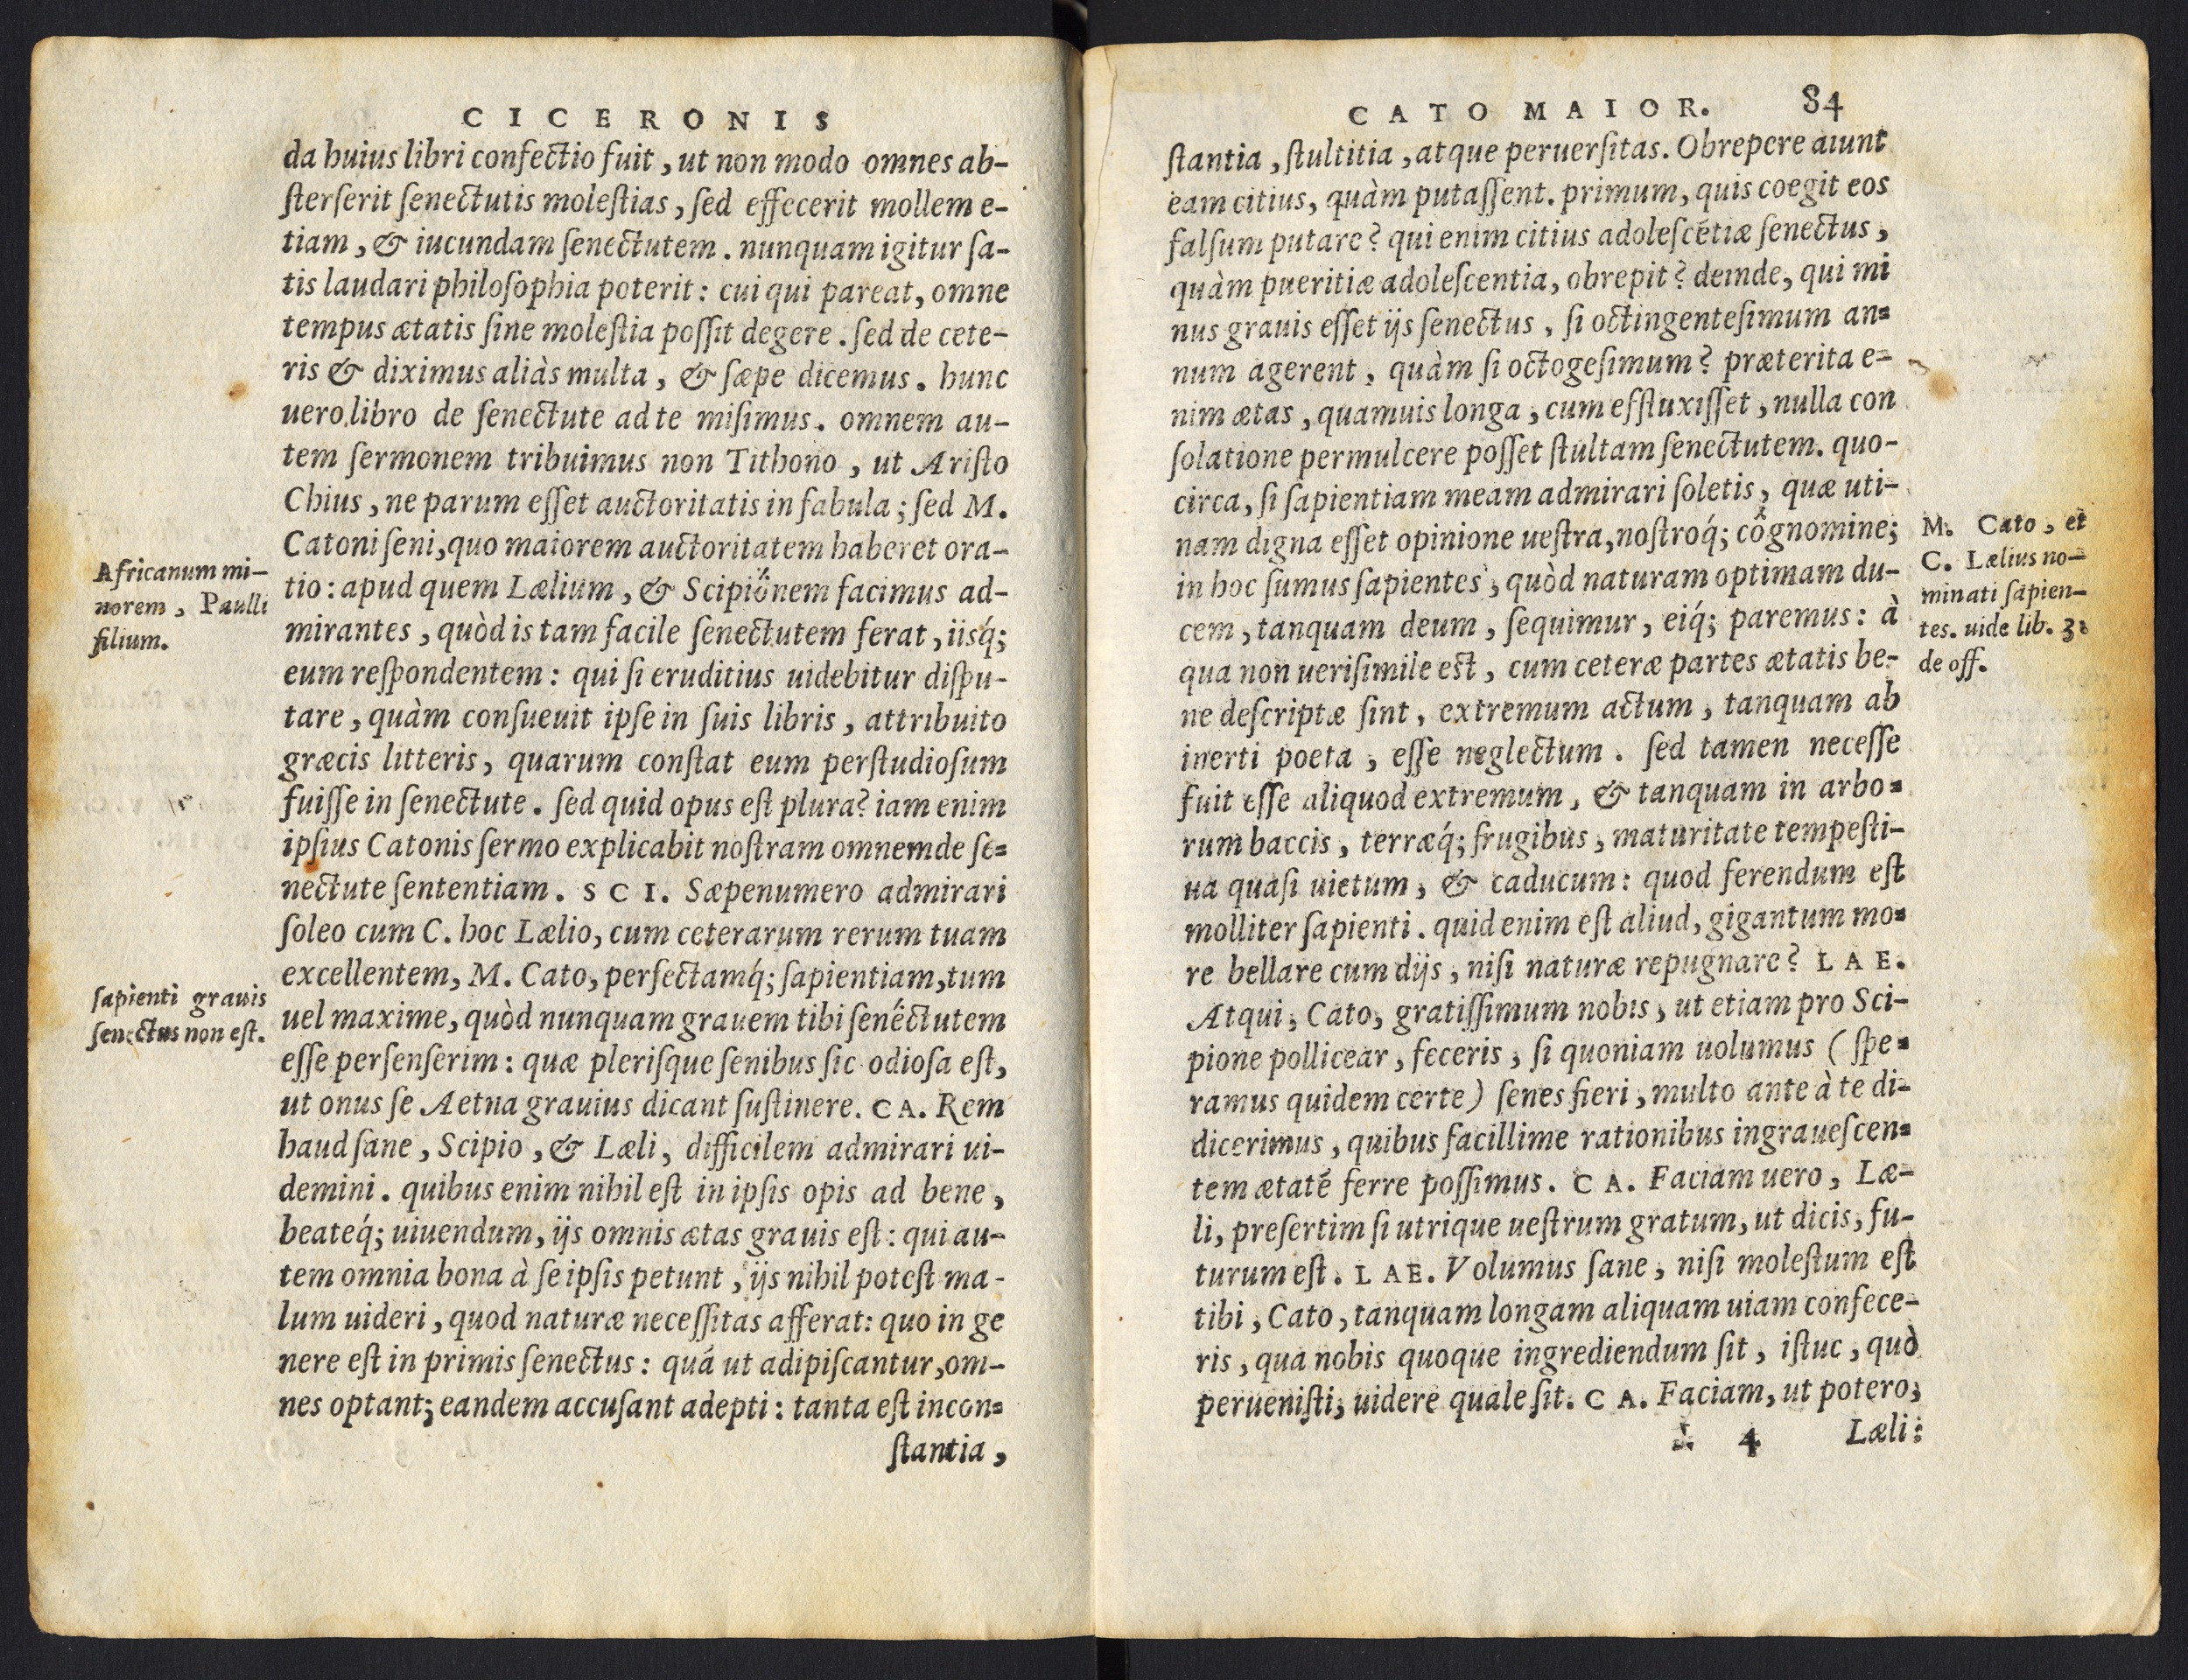 CICERONIS
da huius libri confectio fuit, ut non modo omnes ab-
ſterſerit ſenectutis moleſtias, ſed effecerit mollem e-
tiam, & iucundam ſenectutem. nunquam igitur ſa-
tis laudari philoſophia poterit: cui qui pareat, omne
tempus ætatis ſine moleſtia poſſit degere. ſed de cete-
ris & diximus aliàs multa, & ſæpe dicemus. hunc
uero libro de ſenectute ad te miſimus. omnem au-
tem ſermonem tribuimus non Tithono, ut Ariſto
Chius, ne parum eſſet auctoritatis in fabula; ſed M.
Catoni ſeni, quo maiorem auctoritatem haberet ora-
tio: apud quem Lælium, & Scipionem facimus ad-
mirantes, quòd is tam facile ſenectutem ferat, iisq́;
eum reſpondentem: qui ſi eruditius uidebitur diſpu-
tare, quàm conſueuit ipſe in ſuis libris, attribuito
græcis litteris, quarum conſtat eum perſtudioſum
fuiſſe in ſenectute. ſed quid opus eſt plura? iam enim
ipſius Catonis ſermo explicabit noſtram omnem de ſe=
nectute ſententiam. SCI. Sæpenumero admirari
ſoleo cum C. hoc Lælio, cum ceterarum rerum tuam
excellentem, M. Cato, perfectamq́; ſapientiam, tum
uel maxime, quòd nunquam grauem tibi ſenectutem
eſſe perſenſerim: quæ pleriſque ſenibus ſic odioſa eſt,
ut onus ſe Aetna grauius dicant ſuſtinere. CA. Rem
haud ſane, Scipio, & Læli, difficilem admirari ui-
demini. quibus enim nihil eſt in ipſis opis ad bene,
beateq́; uiuendum, ijs omnis ætas grauis eſt: qui au-
tem omnia bona à ſe ipſis petunt, ijs nihil poteſt ma-
lum uideri, quod naturæ neceſſitas afferat: quo in ge
nere eſt in primis ſenectus: quá ut adipiſcantur, om-
nes optant; eandem accuſant adepti: tanta eſt incon=
ſtantia,
Africanum mi-
norem, Paulli
filium.
ſapienti grauis
ſenectus non eſt.
CATO MAIOR. 84
ſtantia, ſtultitia, atque peruerſitas. Obrepere aiunt
eam citius, quàm putaſſent. primum, quis coegit eos
falſum putare? qui enim citius adoleſcétiæ ſenectus,
quàm pueritiæ adoleſcentia, obrepit? deinde, qui mi
nus grauis eſſet ijs ſenectus, ſi octingenteſimum an=
num agerent, quàm ſi octogeſimum? præterita e-
nim ætas, quamuis longa, cum effluxiſſet, nulla con
ſolatione permulcere poſſet ſtultam ſenectutem. quo-
circa, ſi ſapientiam meam admirari ſoletis, quæ uti-
nam digna eſſet opinione ueſtra, noſtroq́; cognomine;
in hoc ſumus ſapientes, quòd naturam optimam du-
cem, tanquam deum, ſequimur, eiq́; paremus: à
qua non ueriſimile est, cum ceteræ partes ætatis be-
ne deſcriptæ ſint, extremum actum, tanquam ab
inerti poeta, eſſe neglectum. ſed tamen neceſſe
fuit eſſe aliquod extremum, & tanquam in arbo=
rum baccis, terræq́; frugibus, maturitate tempeſti-
ua quaſi uietum, & caducum: quod ferendum eſt
molliter ſapienti. quid enim eſt aliud, gigantum mo=
re bellare cum dijs, niſi naturæ repugnare? LAE.
Atqui, Cato, gratiſſimum nobis, ut etiam pro Sci-
pione pollicear, feceris, ſi quoniam uolumus (ſpe=
ramus quidem certe) ſenes fieri, multo ante à te di-
dicerimus, quibus facillime rationibus ingraueſcen=
tem ætaté ferre poſſimus. CA. Faciam uero, Læ-
li, preſertim ſi utrique ueſtrum gratum, ut dicis, fu-
turum eſt. LAE. Volumus ſane, niſi moleſtum eſt
tibi, Cato, tanquam longam aliquam uiam confece-
ris, qua nobis quoque ingrediendum ſit, iſtuc, quò
perueniſti, uidere quale ſit. CA. Faciam, ut potero,
4 Læli:
M. Cato, et
C. Lælius no-
minati ſapien-
tes. uide lib. 3.
de off.